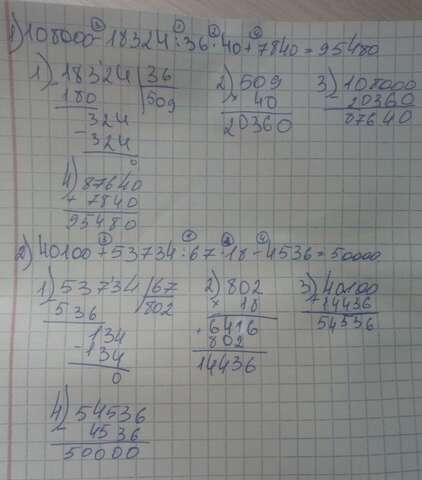 1) 108000 - 18324 : 36 · 40 + 7840 = 95480
1) 18324 | 36
180 | 509
324
- 324
0
2) 509
× 40
20360
3) 108000
- 20360
87640
4) 87640
+ 7840
95480
2) 40100 + 53734 : 67 · 18 - 4536 = 50000
1) 53734 | 67
536 | 802
134
- 134
0
2) 802
× 18
+ 6416
802
14436
3) 40100
+ 14436
54536
4) 54536
- 4536
50000